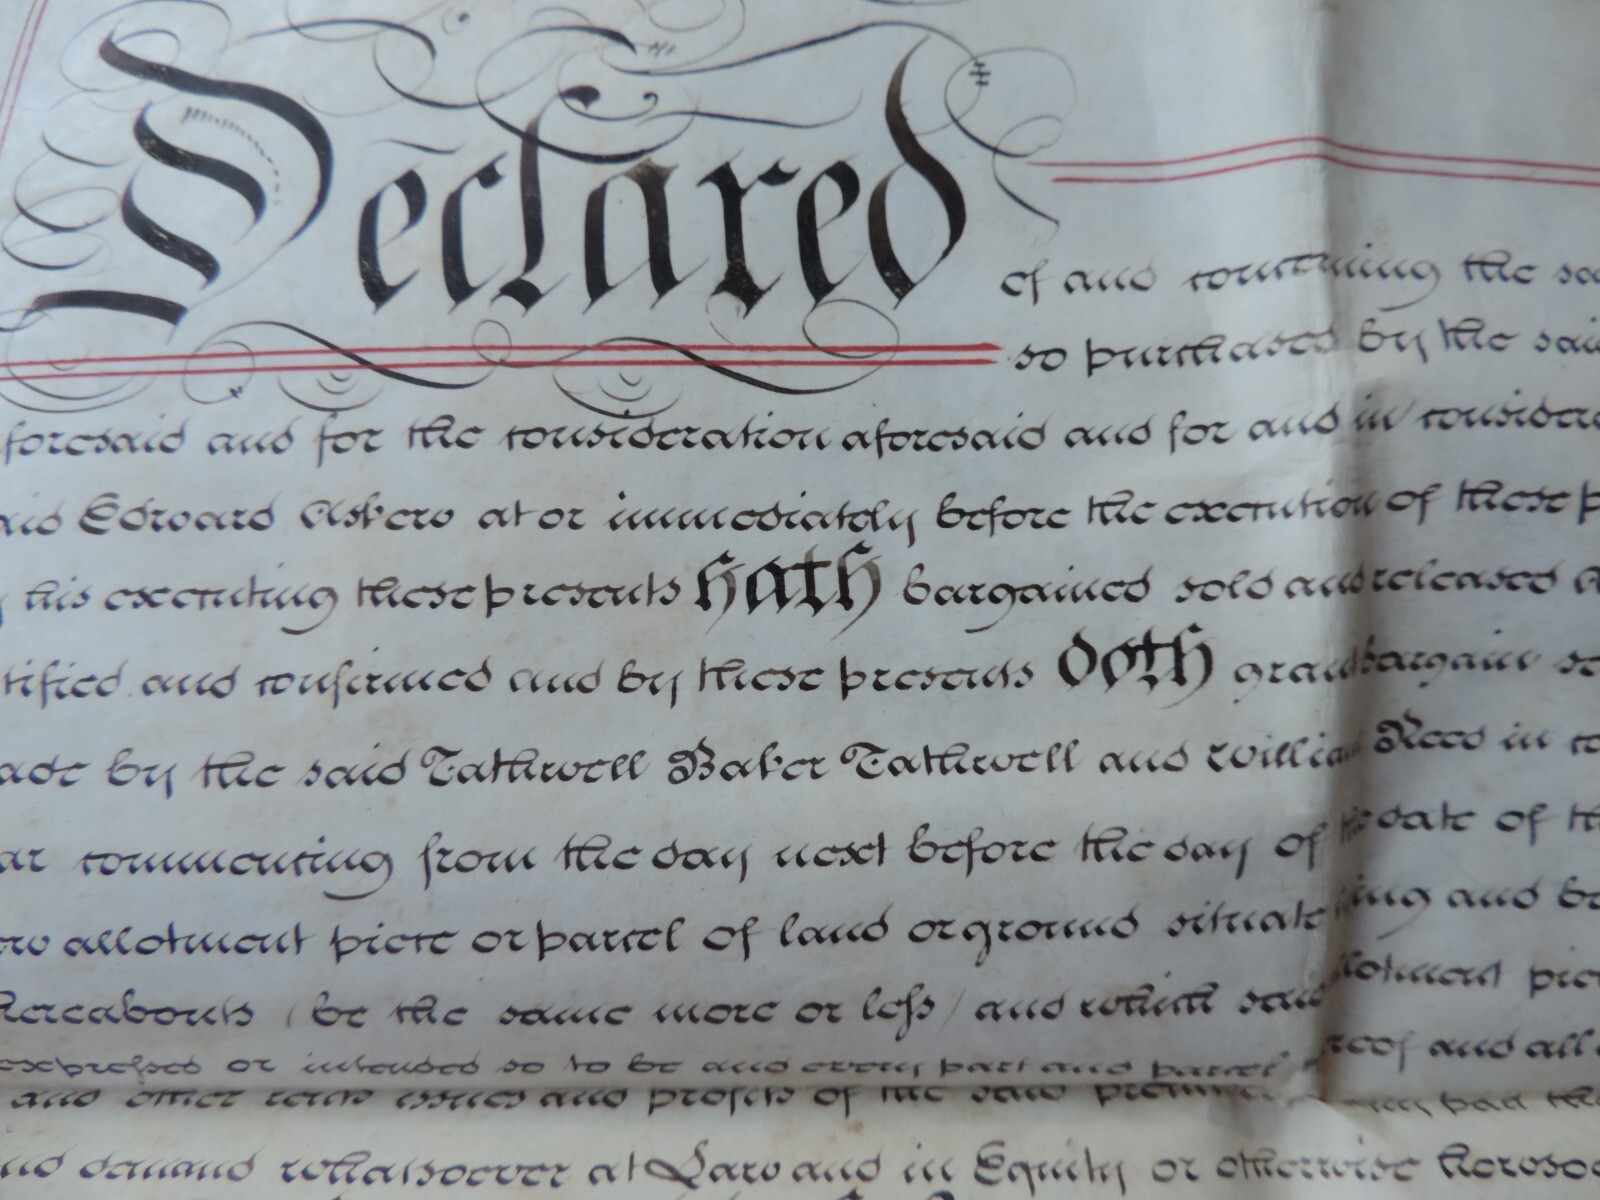 Declared of and concerning the
so purchased by the said
foresaid and for the consideration aforesaid and for and in
Edward Askew at or immediately before the execution of these
his executing these presents hath bargained sold and released
tified and confirmed and by these presents doth grant bargain
by the said Tathwell Baker Tathwell and William Reed in
commencing from the day next before the day of the date of
allotment piece or parcel of land or ground situate and
hereabouts (be the same more or less) and which said allotment
expressed or intended so to be and every part and parcel thereof and all
and other rents issues and profits of the said
demand whatsoever at Law and in Equity or otherwise howsoe